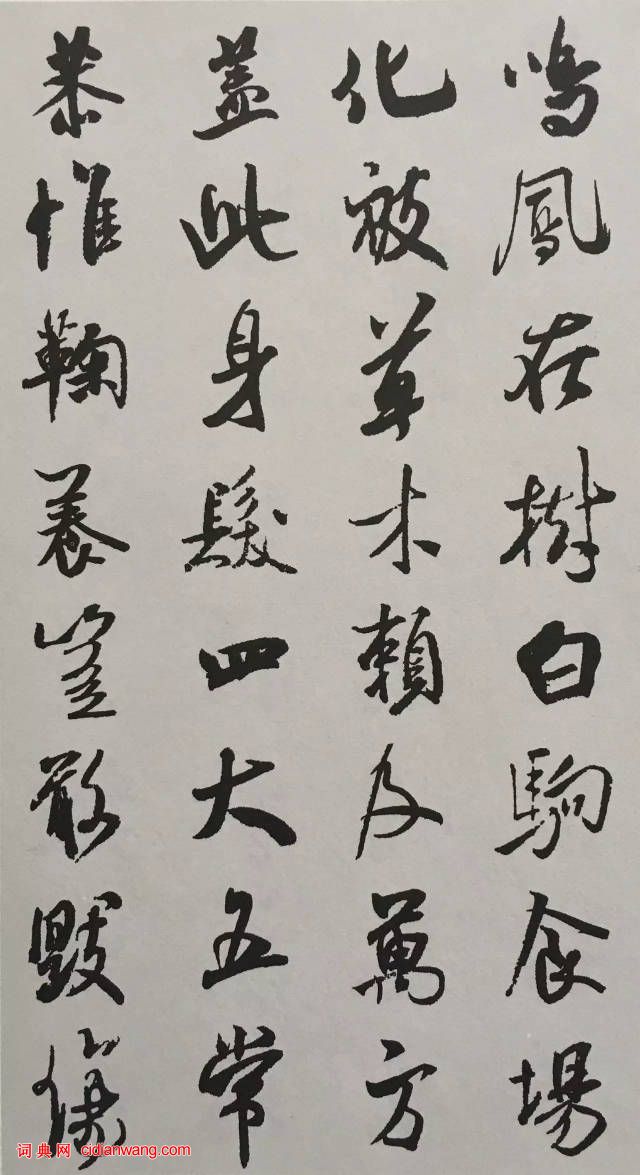 鳴鳳在樹白駒食場
化被草木賴及萬方
蓋此身髮四大五常
恭惟鞠養豈敢毀傷
词典网 cidianwang.com